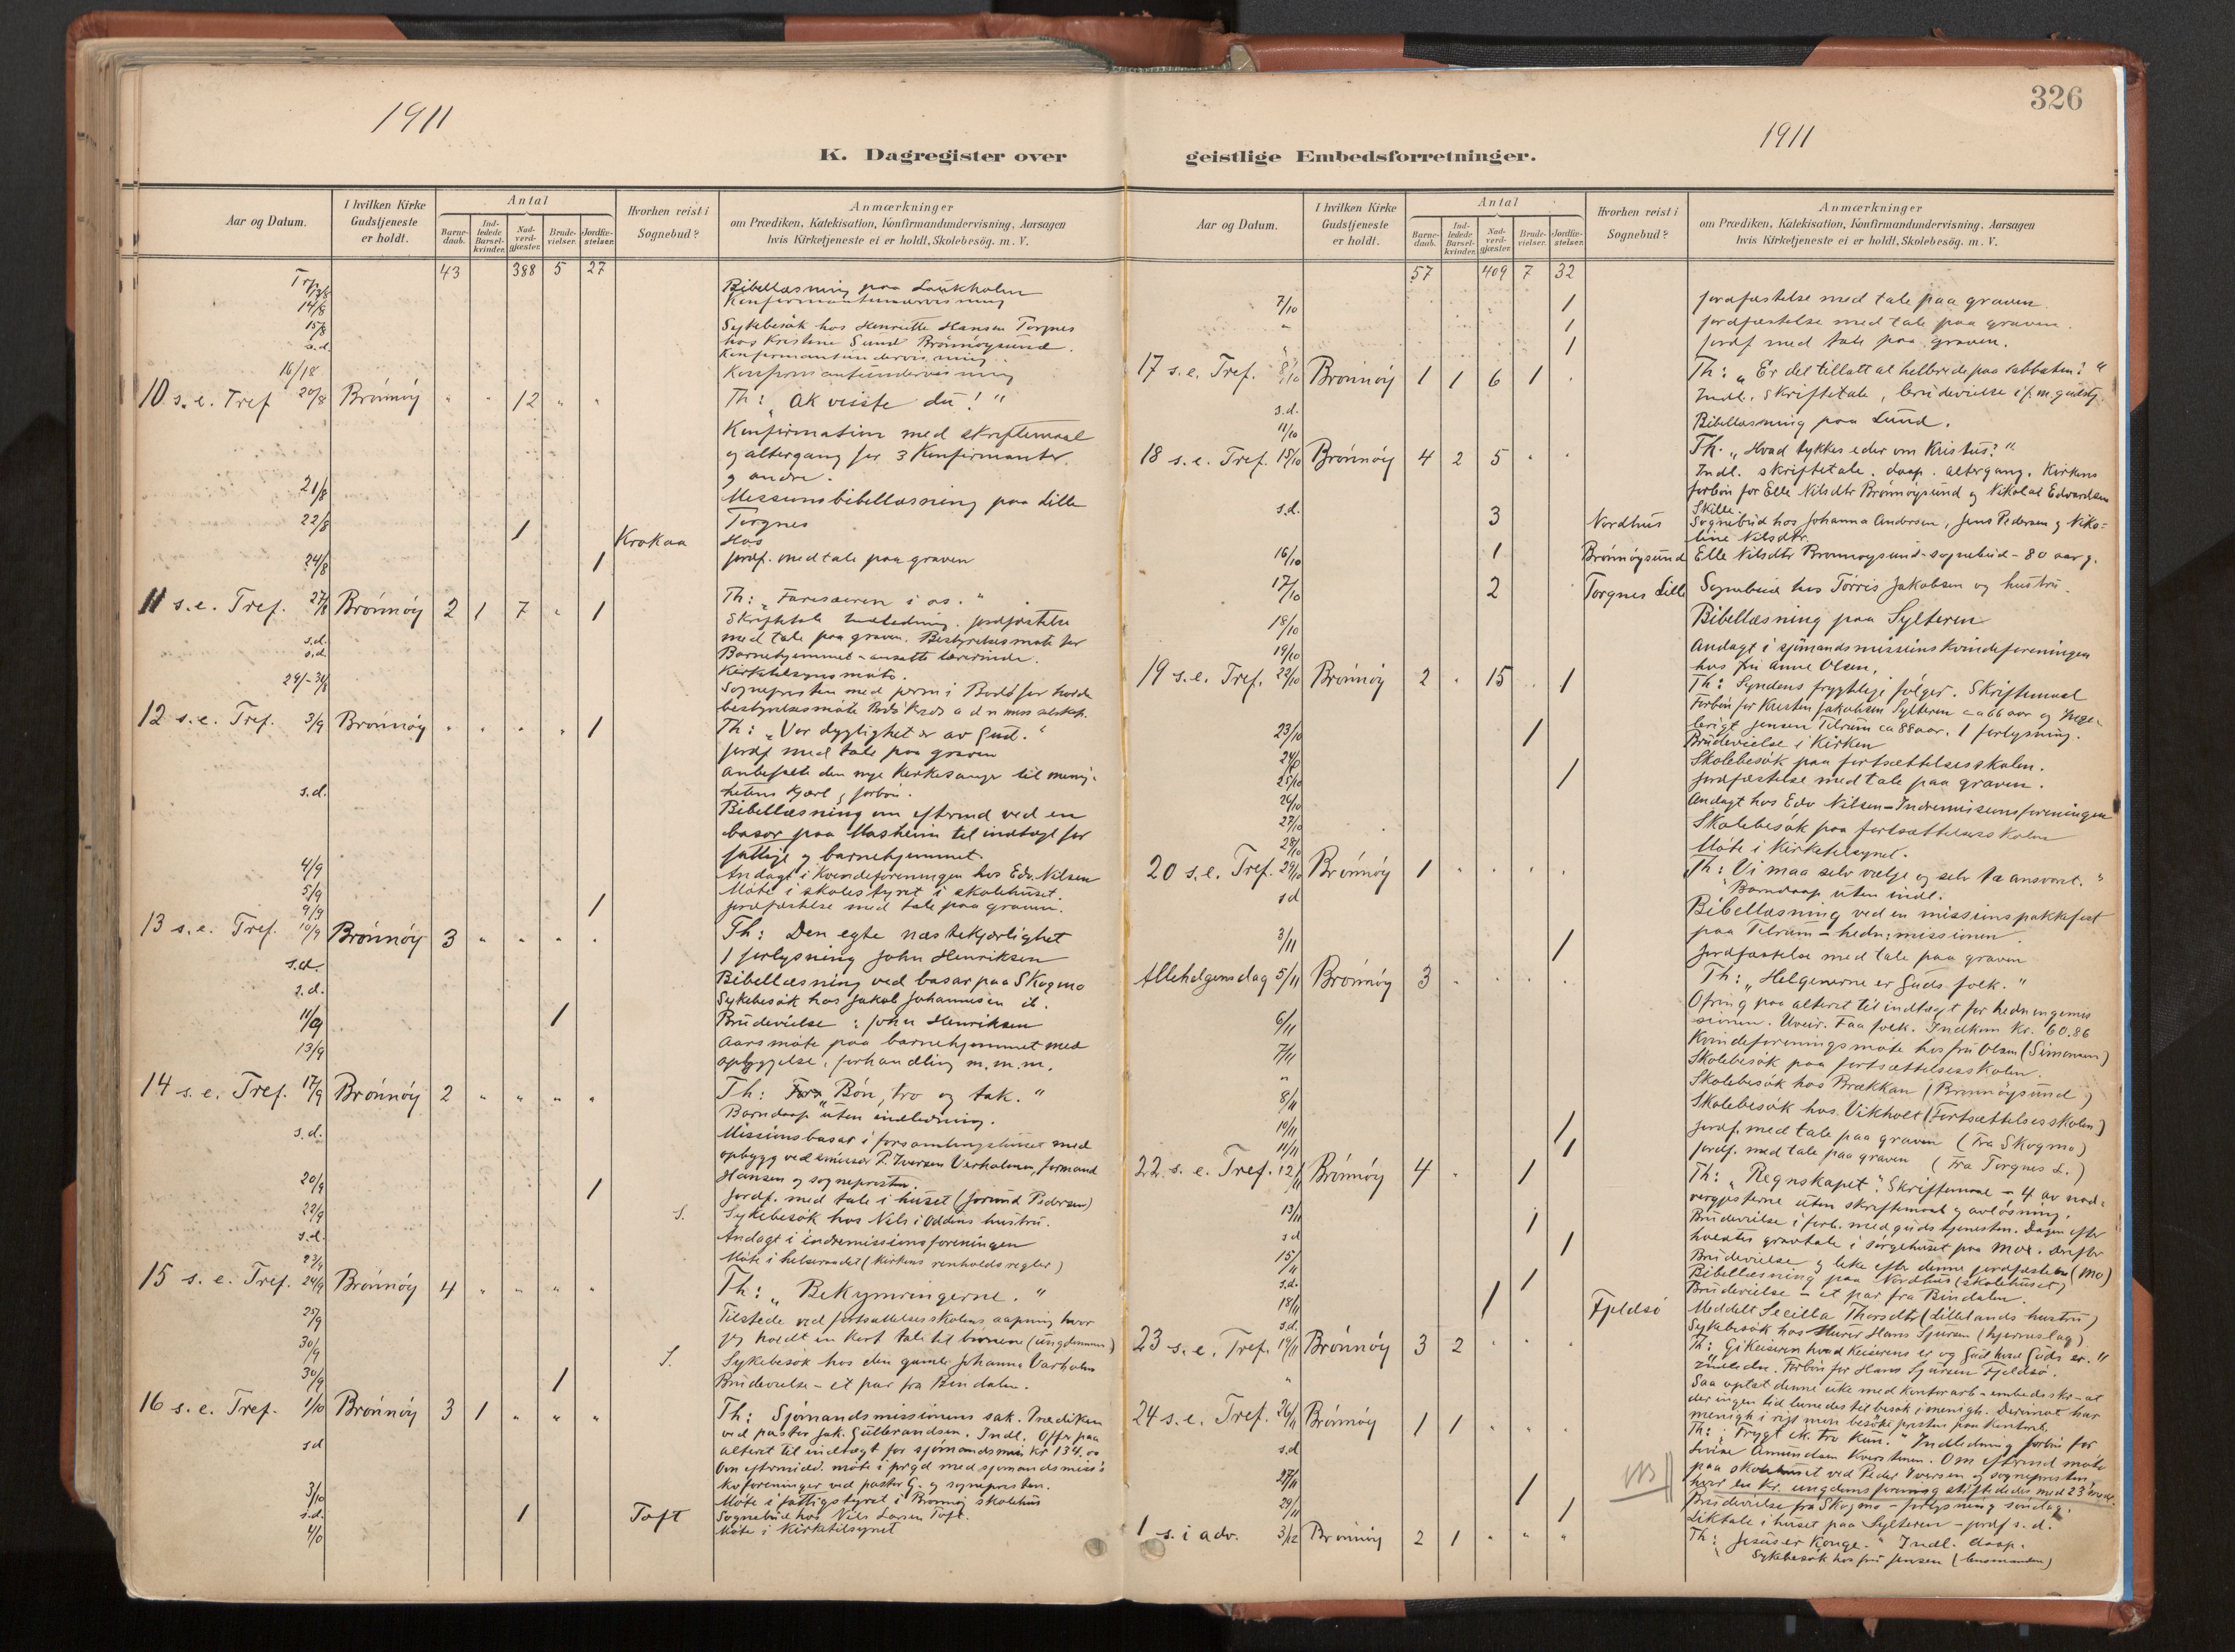 1911
K. Dagregister over
Aar og Datum.
I hvilken Kirke Gudstjeneste er holdt.
Antal
Barnedaab.
Indledede Barselkvinder.
Nadverdgjæster.
Brudevielser.
Jordfæstelser.
Hvorhen reist i Sognebud?
Anmærkninger
om Prædiken, Katekisation, Konfirmandundervisning, Aarsagen
hvis Kirketjeneste ei er holdt, Skolebesög. m. V.
43 388 5 27
Bibellæsning paa
14/8 Konfirmantundervisning
15/8 Sykebesøk hos Henriette Hansen Torgnes
s.d. hos Kristine Sund Brønnøysund.
Konfirmantundervisning
16/18 Konfirmantundervisning
10 s. e. Tref 20/8 Brønnøy " " 12 " " Th: "Ak visste du!"
Konfirmation med skriftemaal
og altergang for 3 Konfirmanter
og andre.
21/8 Missionsbibellæsning paa Lille
Torgnes
22/8 1 Krokaa Hos
24/8 1 Jordf. med tale paa graven
11 s. e. Tref. 27/8 Brønnøy 2 1 7 " 1 Th: "Faresæeren i os."
Skriftetale Indledning. Jordfæstelse
med tale paa graven. Bestyrelsesmøte for
s.d. Barnehjemmet - ansatte lærerinde.
s.d. Kirketilsynsmøte.
29/-31/8 Sognepresten med prm i Bodø for holde
bestyrelsesmøte Bodø Kreds a d n miss selskap.
12 s. e. Tref. 3/9 Brønnøy " " " " 1 Th: "Vor dygtighet er av Gud."
Jordf med tale paa graven
Anbefalte den nye Kirkesanger til menig-
hetens kjærl. forbøn.
s.d. Bibellæsning om efterm d ved en
basar paa Masheim til indtægt for
fattige og barnehjemmet.
4/9 Andagt i Kvindeforeningen hos Edv. Nilsen
5/9 Møte i skolestyret i skolehuset.
9/9 1 Jordfæstelse med tale paa graven.
13 s. e. Tref. 10/9 Brønnøy 3 " " " " Th: Den egte næstekjærlighet
1 forlysning John Henriksen
s.d. Bibellæsning ved basar paa Skogmo
s.d. Sykebesøk hos Jakob Johannesen ib.
11/9 1 Brudevielse: John Henriksen
13/9 Aarsmøte paa barnehjemmet med
opbyggelse, forhandling m.m.m.
14 s. e. Tref. 17/9 Brønnøy 2 " " " " Th: "Bøn, tro og tak."
Barndaap uten indledning.
s.d. Missionsbasar i forsamlingshuset med
opbygg ved emissær P. Iversen Verholmen, formand
Hansen og sognepresten.
20/9 1 Jordf. med tale i huset (Jorund Pedersen)
22/9 S. Sykebesøk hos Nils i Oddens hustru.
s.d. Andagt i indremissionsforeningen
23/9 Møte i helseraadet (Kirkens renholdsregler)
15 s. e. Tref. 24/9 Brønnøy 4 " " " " Th: "Bekymringerne."
25/9 Tilstede ved fortsættelsesskolens aapning hvor
jeg holdt en kort tale til børnene (ungdommen)
30/9 S. Sykebesøk hos den gamle Johanna Varholm
30/9 1 Brudevielse - et par fra Bindalen.
16 s. e. Tref. 1/10 Brønnøy 3 1 " " " Th: Sjømandsmissionens sak. Prædiken
ved pastor Jak. Gulbrandsen. Indl. Offer paa
s d alteret til indtægt for sjømandsmis Kr 134.00
Om eftermidd. møte i prgd med sjømandsmiss's
kvforeninger ved pastor G. og sognepresten.
3/10 Møte i fattigstyret i Brønnøy skolehus
s.d. 1 Toft Sognebud hos Nils Larsen Toft.
4/10 Møte i Kirketilsynet
326
1911
geistlige Embedsforretninger.
Aar og Datum.
I hvilken Kirke Gudstjeneste er holdt.
Antal
Barnedaab.
Indledede Barselkvinder.
Nadverdgjæster.
Brudevielser.
Jordfæstelser.
Hvorhen reist i Sognebud?
Anmærkninger
om Prædiken, Katekisation, Konfirmandundervisning, Aarsagen
hvis Kirketjeneste ei er holdt, Skolebesög. m. V.
57 409 7 32
7/10 1 Jordfæstelse med tale paa graven
" 1 Jordfæstelse med tale paa graven.
" 1 Jordf med tale paa graven.
17 s. e. Tref. 8/10 Brønnøy 1 1 6 1 . Th: "Er det tillatt at helbrede paa sabbaten?"
Indl. Skriftetale, brudevielse i f.m. gudstj.
s.d. Bibellæsning paa Lund.
11/10
18 s. e. Tref. 15/10 Brønnøy 4 2 5 " " Th. "Hvad tykkes eder om Kristus?"
Indl. skriftetale. daap. altergang. Kirkens
forbøn for Elle Nilsdtr Brønnøysund og Nikolai Edvardsen
Skille.
s.d. 3 Nordhus Sognebud hos Johanna Andersen, Jens Pedersen og Niko-
line Nilsdtr.
16/10 1 Brønnøysund Elle Nilsdtr Brønnøysund - sognebud - 80 aar g.
17/10 2 Torgnes Lille Sognebud hos Torris Jakobsen og hustru.
18/10 Bibellæsning paa Sylteren
19/10 Andagt i sjømandsmissions Kvindeforeningen
hos fru Anne Olsen.
19 s. e. Tref. 22/10 Brønnøy 2 . 15 . 1 Th: Syndens frygtelige følger. Skriftemaal
Forbøn for Kristen Jakobsen Sylteren ca 66 aar og Inge-
brigt Jensen Tilrum ca 88 aar. 1 forlysning.
23/10 1 Brudevielse i Kirken
24/10 Skolebesøk paa fortsættelsesskolen.
25/10 1 Jordfæstelse med tale paa graven.
26/10 Andagt hos Edv Nilsen - Indremissionsforeningen
27/10 Skolebesøk paa fortsættelsesskolen
28/10 Møte i Kirketilsynet.
20 s. e. Tref. 29/10 Brønnøy 1 " " " " Th: Vi maa selv vælge og selv ta ansvaret."
Barndaap uten indl.
s d Bibellæsning ved en missionspakkefest
paa Tilrum - hedn: missionen.
3/11 1 Jordfæstelse med tale paa graven
Allehelgensdag 5/11 Brønnøy 3 " " " " Th: "Helgenerne er Guds folk."
Ofring paa alteret til indtægt for hedningemis
sionen. Uveir. Faa folk. Indkom Kr. 60.86
6/11 Kvindeforeningsmøte hos fru Olsen (Simonsen)
7/11 Skolebesøk paa fortsættelsesskolen.
" Skolebesøk hos Brækkan (Brønnøysund)
8/11 Skolebesøk hos Vikholt (Fortsættelsesskolen)
10/11 1 Jordf. med tale paa graven (Fra Skogmo)
11/11 1 Jordf. med tale paa graven (Fra Torgnes L.)
22 s. e. Tref. 12/11 Brønnøy 4 " 1 Th: "Regnskapet". Skriftemaal - 4 av nad-
vergjesterne uten skriftemaal og avløsning.
13/11 1 Brudevielse i forb. med gudstjenesten. Dagen efter
s d 1 holdtes gravtale i sørgehuset paa Moe. derefter
Brudevielse og like efter denne jordfæstelse (Mo)
15/11 Bibellæsning paa Nordhus (skolehuset)
s.d. 1 Brudevielse - et par fra Bindalen.
18/11 1 Fjeldsø Meddelt Secilla Thorsdtr (Lillelands hustru)
s.d. Sykebesøk hos Murer Hans Sjursen (hjerneslag)
23 s. e. Tref. 19/11 Brønnøy 3 2 " " " Th: Gi Keiseren hvad Keiserens er og Gud hvad Guds er."
Forbøn for Hans Sjursen Fjeldsø.
" Saa optat denne uke med kontorarb - embedsskr - at
der ingen tid levnedes til besøk i menigh. Derimot har
menigh i rigt mon besøkt presten paa Kontoret.
24 s. e. Tref. 26/11 Brønnøy 1 1 " " " Th: "Frygt ik. tro kun." Indledning forbøn for
Amundsen Om efterm d møte
s.d paa skolehuset ved Peder Iversen og sognepresten,
NB hvor en kr. ungdomsforening stiftedes med 23 medl.
27/11 1 Brudevielse fra Skogmo - forlysning søndag.
29/11 1 Liktale i huset paa Sylteren - jordf s. d.
1 s. i adv. 3/12 Brønnøy 2 1 " " " Th: "Jesus er Konge." Indl. daap.
Sykebesøk hos fru Jensen (lensmanden)